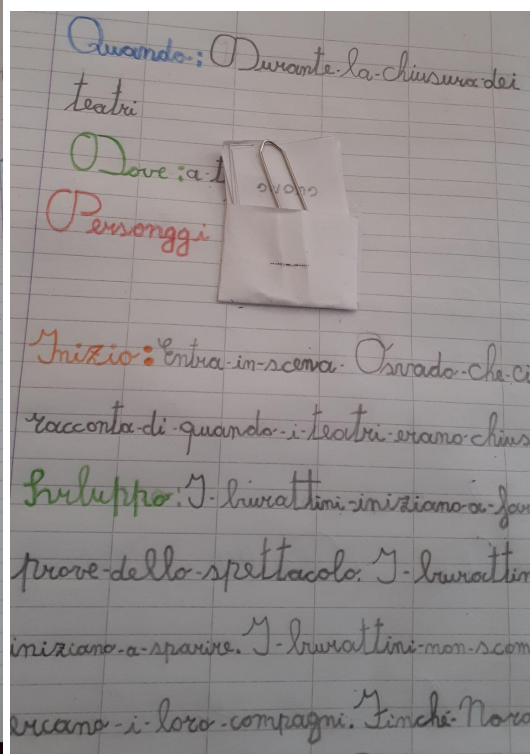 Quando: Durante-la-chiusura-dei
teatri
Dove: a-t
Personggi
Inizio: Entra-in-scena- Osvado-che-ci
racconta-di-quando-i-teatri-erano-chius
Sviluppo: I-burattini-iniziano-a-fa
prove-dello-spettacolo. I-burattin
iniziano-a-sparire. I-burattini-non-scom
ercano-i-loro-compagni. Finchè-Nora